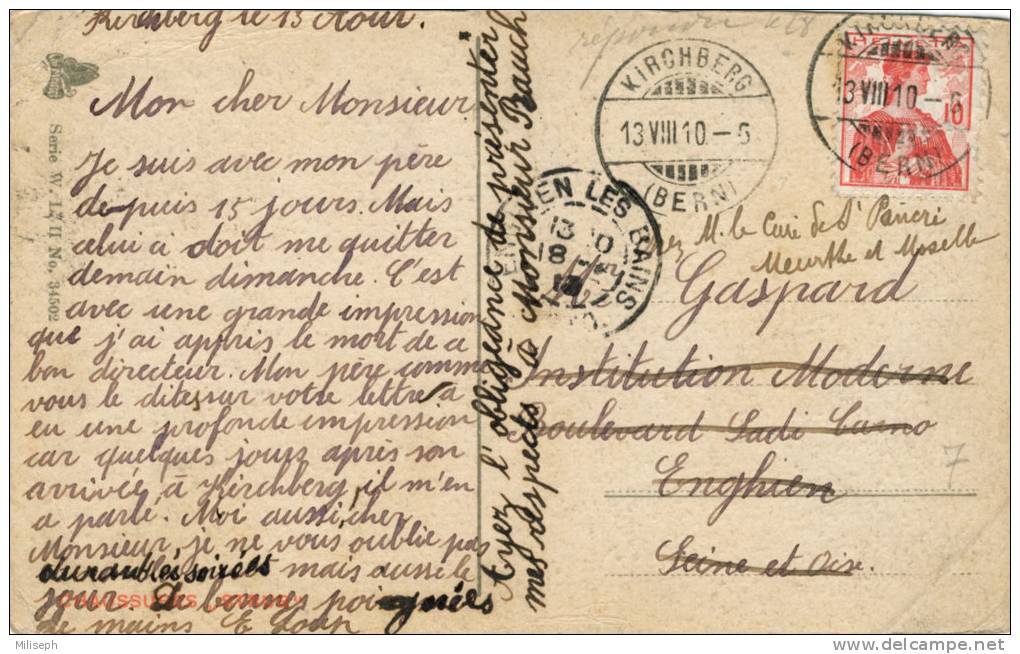 Kirchberg le 13 Août.
Mon cher Monsieur
Je suis avec mon père
depuis 15 jours. Mais
celui a doit me quitter
demain dimanche. C'est
avec une grande impression
que j'ai appris le mort de a
bon directeur. Mon père comme
vous le dites sur votre lettre a
eu une profonde impression
car quelques jours après son
arrivée à Kirchberg il m'en
a parlé. Moi aussi cher
Monsieur je ne vous oublie pas
durant les soirées mais aussi le
jour. De bonnes poignées
de mains E Loup
Ayez l'obligeance de présenter
mes respects à Monsieur Bauch
Serie W. L. II No. 34502
CHAUSSURES
KIRCHBERG
13 VIII 10.-6
(BERN)
KIRCHBERG
13 VIII 10.-6
(BERN)
HELVETIA
10
ENGHIEN LES BAINS
13
18
chez M. le Curé de St Pancré
Meurthe et Moselle
Gaspard
Institution Moderne
Boulevard Sadi Carno
Enghien
Seine et Oise.
7
Miliseph
www.delcampe.net